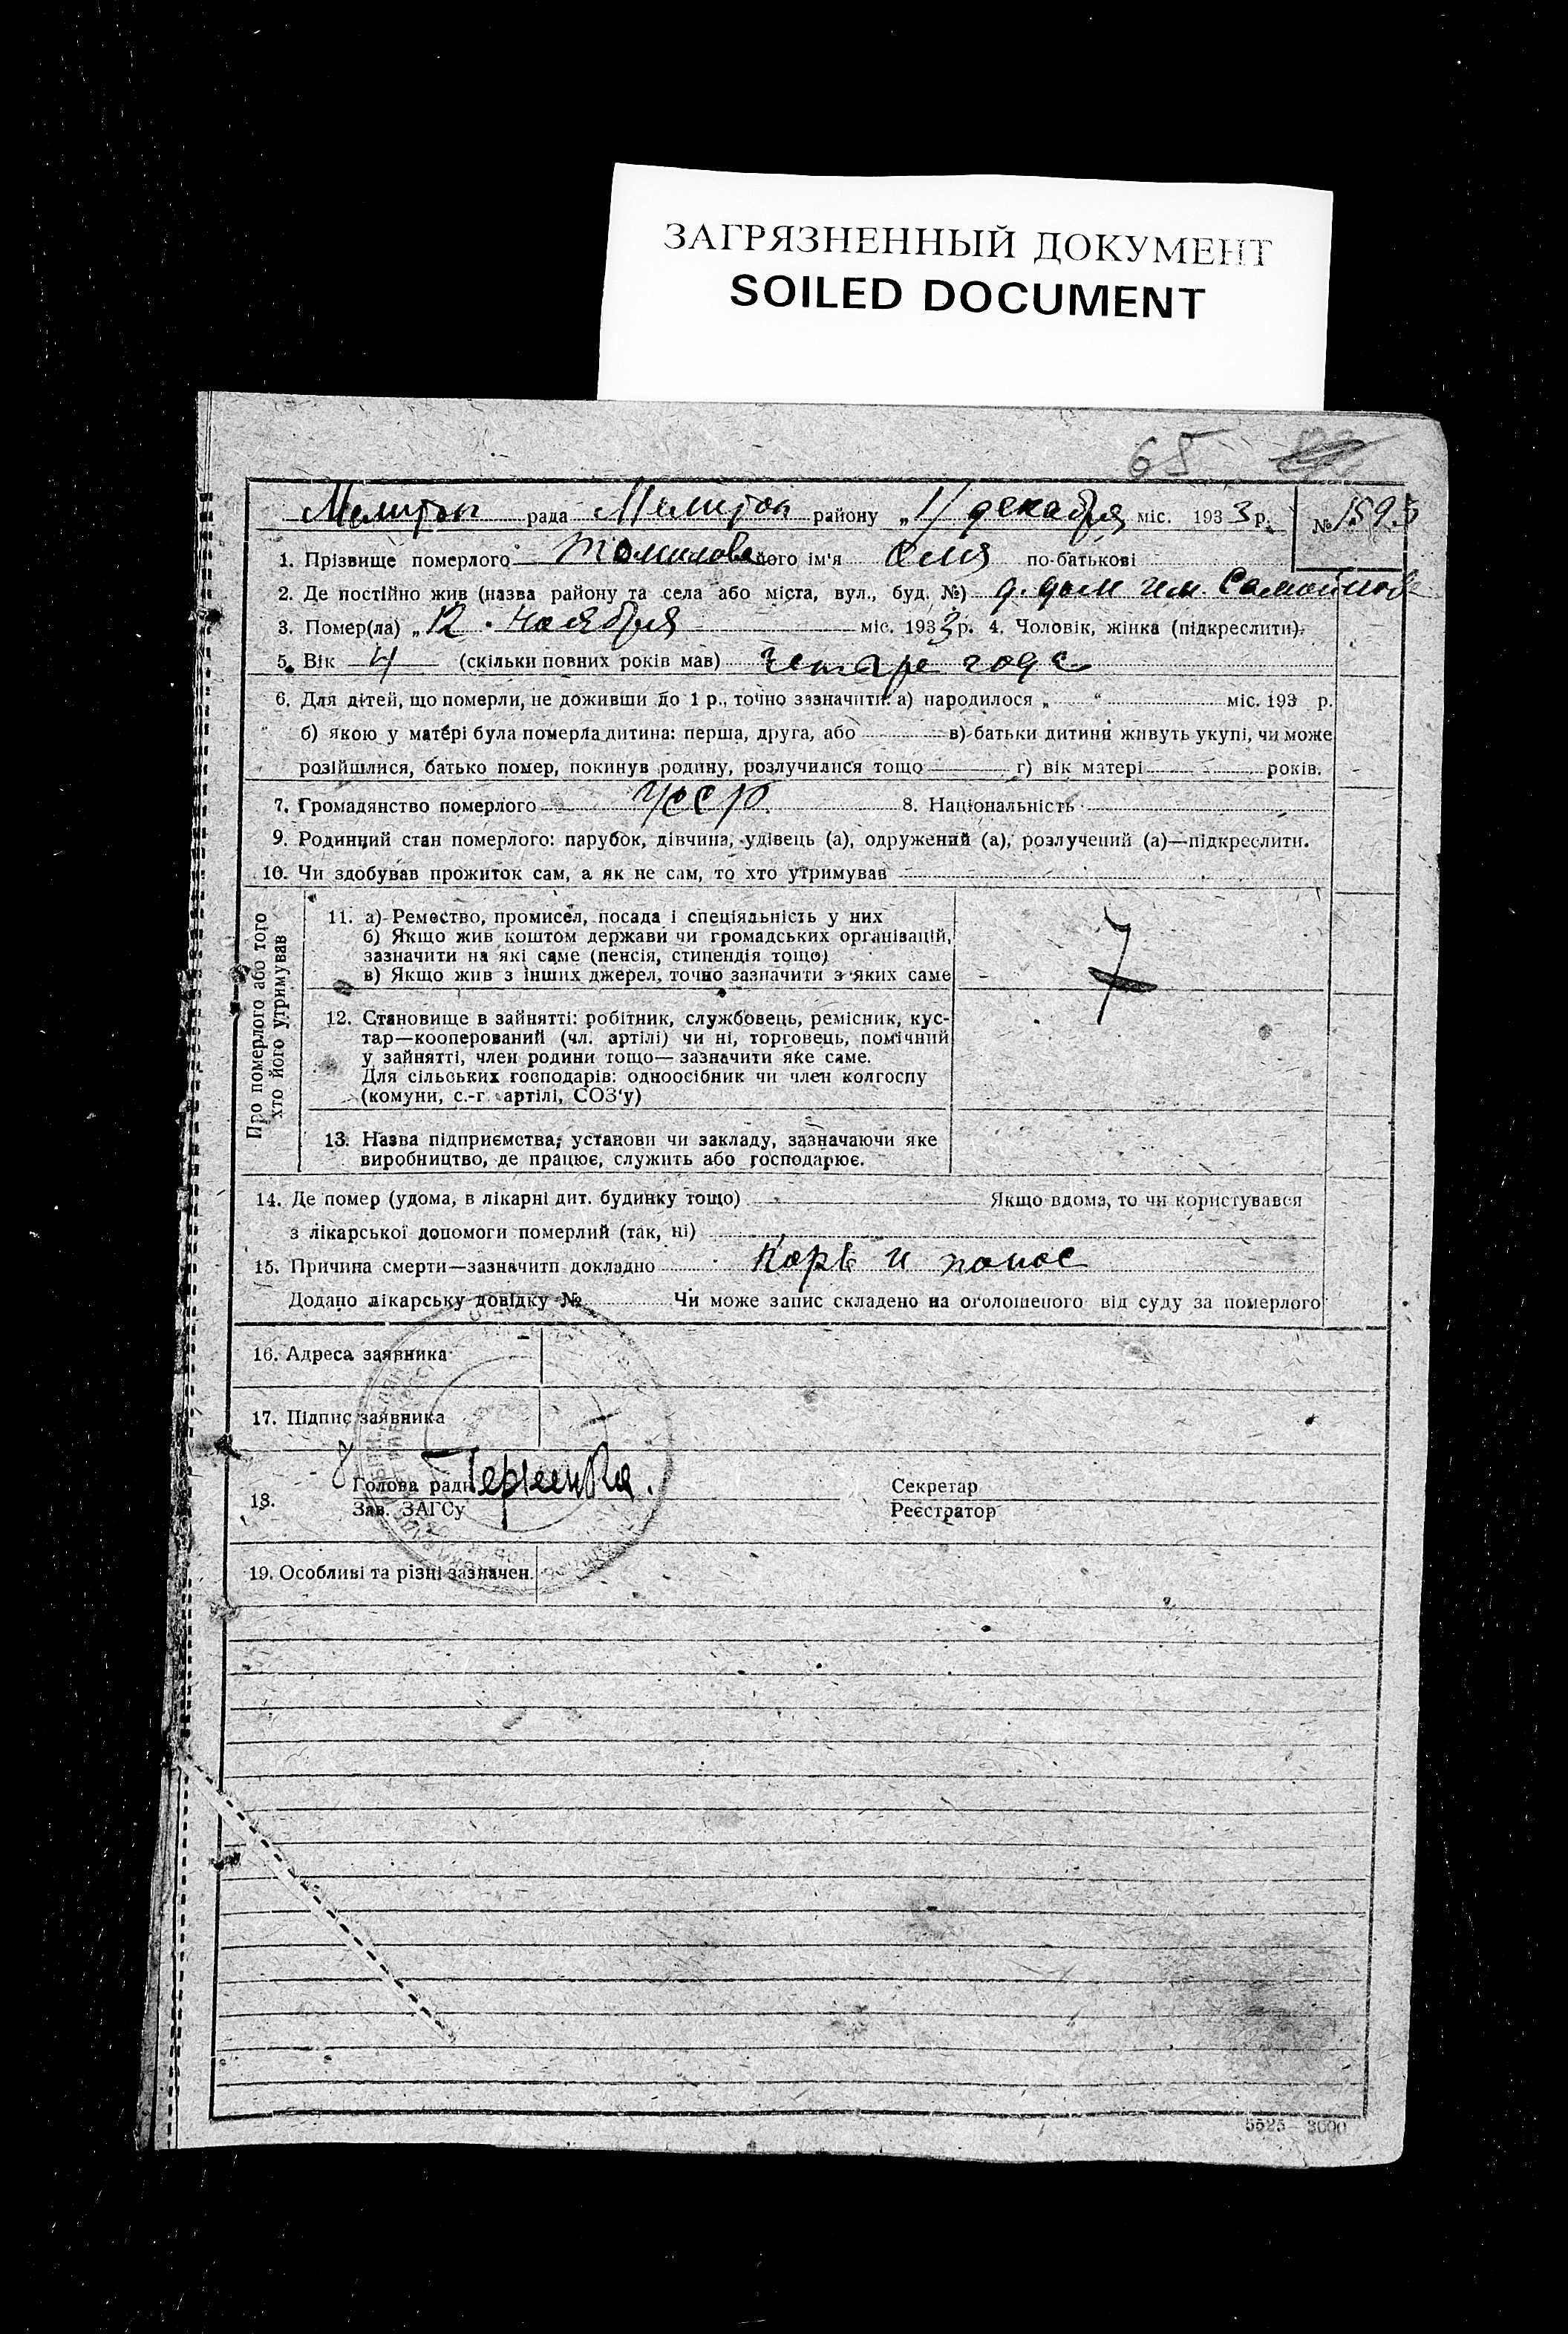 ЗАГРЯЗНЕННЫЙ ДОКУМЕНТ
SOILED DOCUMENT
65
Мелитоп рада Мелитоп району „11 декабря міс. 1933 р. № 1593
1. Прізвище померлого Томилова його ім'я Оля по-батькові
2. Де постійно жив (назва району та села або міста, вул., буд. №) д. дом им Самойлова
3. Помер(ла) „12 ноября міс. 1933 р. 4. Чоловік, жінка (підкреслити).
5. Вік 4 (скільки повних років мав) четаре года
6. Для дітей, що померли, не доживши до 1 р., точно зазначити: а) народилося „ “ міс. 193 р.
б) якою у матері була померла дитина: перша, друга, або в) батьки дитини живуть укупі, чи може
розійшлися, батько помер, покинув родину, розлучилися тощо г) вік матері років.
7. Громадянство померлого УССР 8. Національність
9. Родинний стан померлого: парубок, дівчина, удівець (а), одружений (а), розлучений (а)—підкреслити.
10. Чи здобував прожиток сам, а як не сам, то хто утримував
Про померлого або того
хто його утримував
11. а) Ремество, промисел, посада і спеціяльність у них
б) Якщо жив коштом держави чи громадських організацій,
зазначити на які саме (пенсія, стипендія тощо)
в) Якщо жив з інших джерел, точно зазначити з яких саме
7
12. Становище в зайнятті: робітник, службовець, ремісник, кус-
тар—кооперований (чл. артілі) чи ні, торговець, помічний
у зайнятті, член родини тощо—зазначити яке саме.
Для сільських господарів: одноосібник чи член колгоспу
(комуни, с.-г. артілі, СОЗ'у)
13. Назва підприємства, установи чи закладу, зазначаючи яке
виробництво, де працює, служить або господарює.
14. Де помер (удома, в лікарні дит. будинку тощо) Якщо вдома, то чи користувався
з лікарської допомоги померлий (так, ні)
15. Причина смерти—зазначити докладно Корь и понос
Додано лікарську довідку № Чи може запис складено на оголошеного від суду за померлого
16. Адреса заявника
17. Підпис заявника
18. Голова ради Секретар
Зав. ЗАГСу Реєстратор
19. Особливі та різні зазначен.
5525—3000